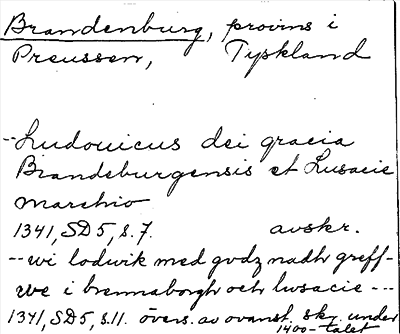 Brandenburg, provins i
Preussen, Tyskland
--Ludouicus dei gracia
Brandeburgensis et Lusacie
marchio
1341, SD 5, s. 7. avskr.
--wi lodwik med gudz nadh greff-
we i brennaborgh och lwsacie ---
1341, SD 5, s. 11. övers. av ovanst. skr. under
1400-talet